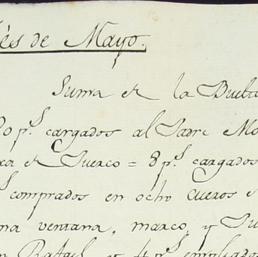 és de Mayo.
Suma de la Buelta
0 p.s cargados al Padre Mo
xa de Puerco = 8 p.s cargados
s comprados en ocho cueros
na ventana, marco, y Pu
n Rafael, y 4 p.s empliados